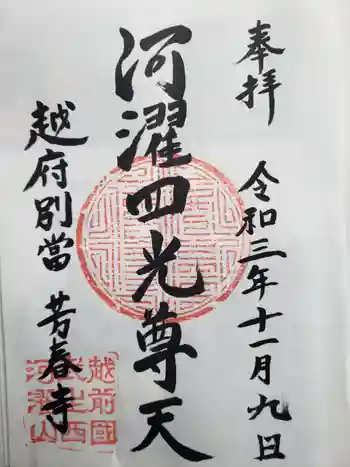 奉拝
令和三年十一月九日
河濯四光尊天
越府別當 芳春寺
越前国
武生西
河濯山